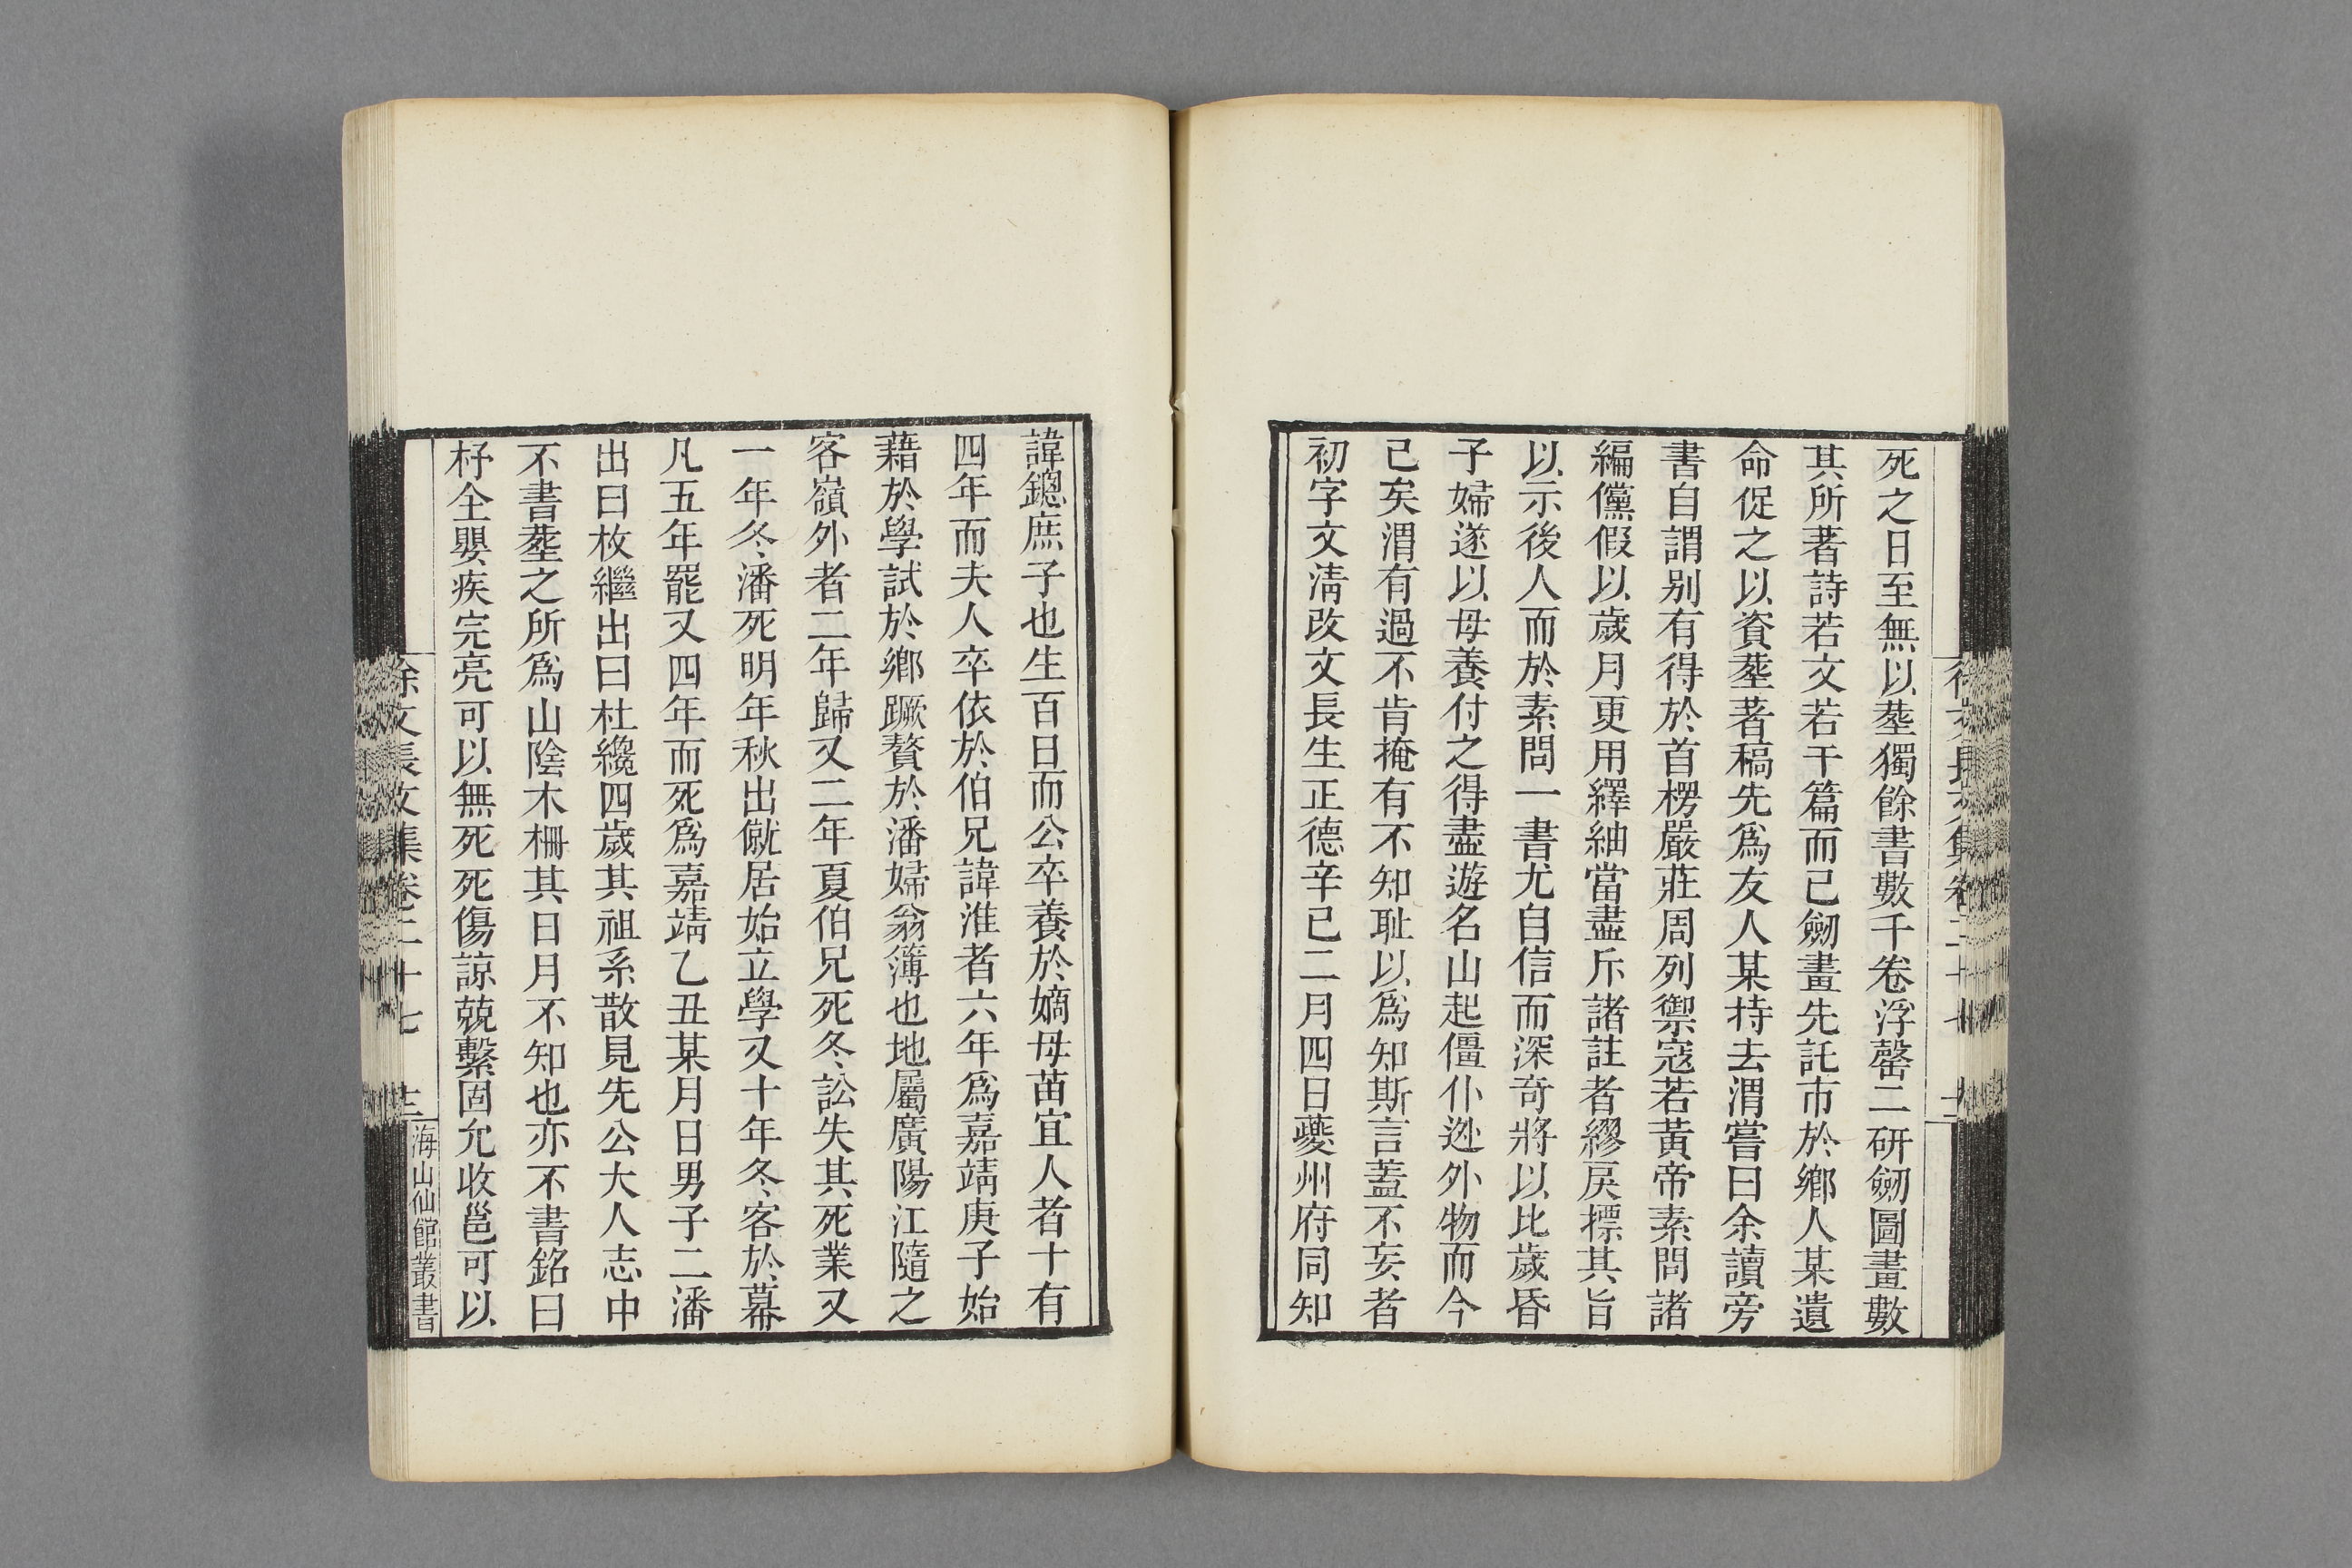 死之日至無以塟獨餘書數千卷浮磬二研劒圖畫數
其所著詩若文若干篇而已劒畫先託市於鄉人某遺
命促之以資塟著稿先爲友人某持去渭嘗曰余讀旁
書自謂别有得於首楞嚴莊周列禦寇若黃帝素問諸
編儻假以歲月更用繹紬當盡斥諸註者繆戾摽其旨
以示後人而於素問一書尤自信而深奇將以比歲昏
子婦遂以母養付之得盡遊名山起僵仆逊外物而今
已矣渭有過不肯掩有不知耻以爲知斯言蓋不妄者
初字文淸改文長生正德辛巳二月四日夔州府同知
諱鏓庶子也生百日而公卒養於嫡母苗宜人者十有
四年而夫人卒依於伯兄諱淮者六年爲嘉靖庚子始
藉於學試於鄉蹶贅於潘婦翁簿也地屬廣陽江隨之
客嶺外者二年歸又二年夏伯兄死冬訟失其死業又
一年冬潘死明年秋出僦居始立學又十年冬客於幕
凡五年罷又四年而死爲嘉靖乙丑某月日男子二潘
出曰枚繼出曰杜纔四歲其祖系散見先公大人志中
不書塟之所爲山陰木柵其日月不知也亦不書銘曰
杍全嬰疾完亮可以無死死傷諒兢繫固允收邕可以
徐文長文集卷二十七 十三
海山仙館叢書